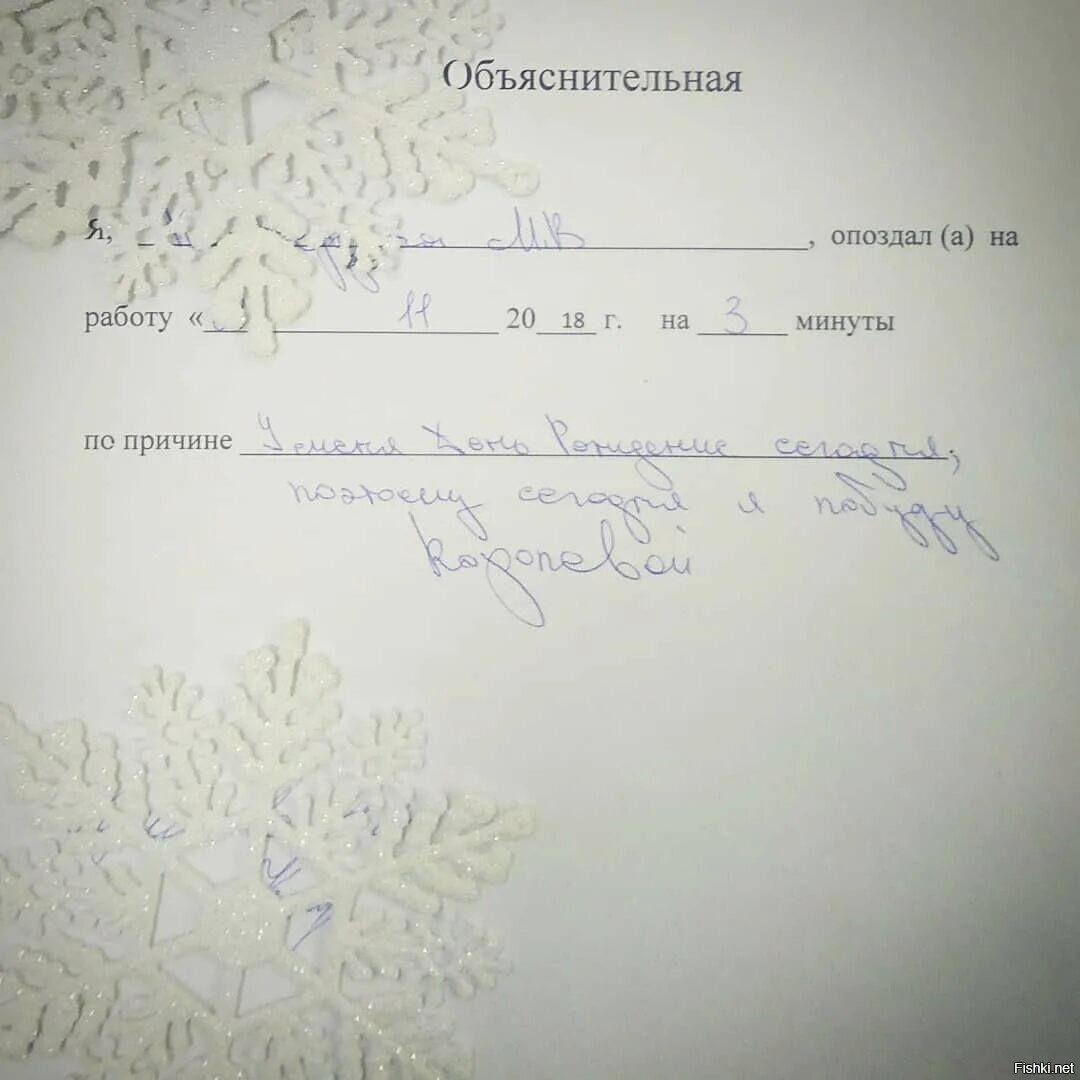 Объяснительная
Я, МВ, опоздал (а) на
работу « 11 2018 г. на 3 минуты
по причине У меня День Рождение сегодня,
поэтому сегодня я побуду
Королевой
Fishki.net